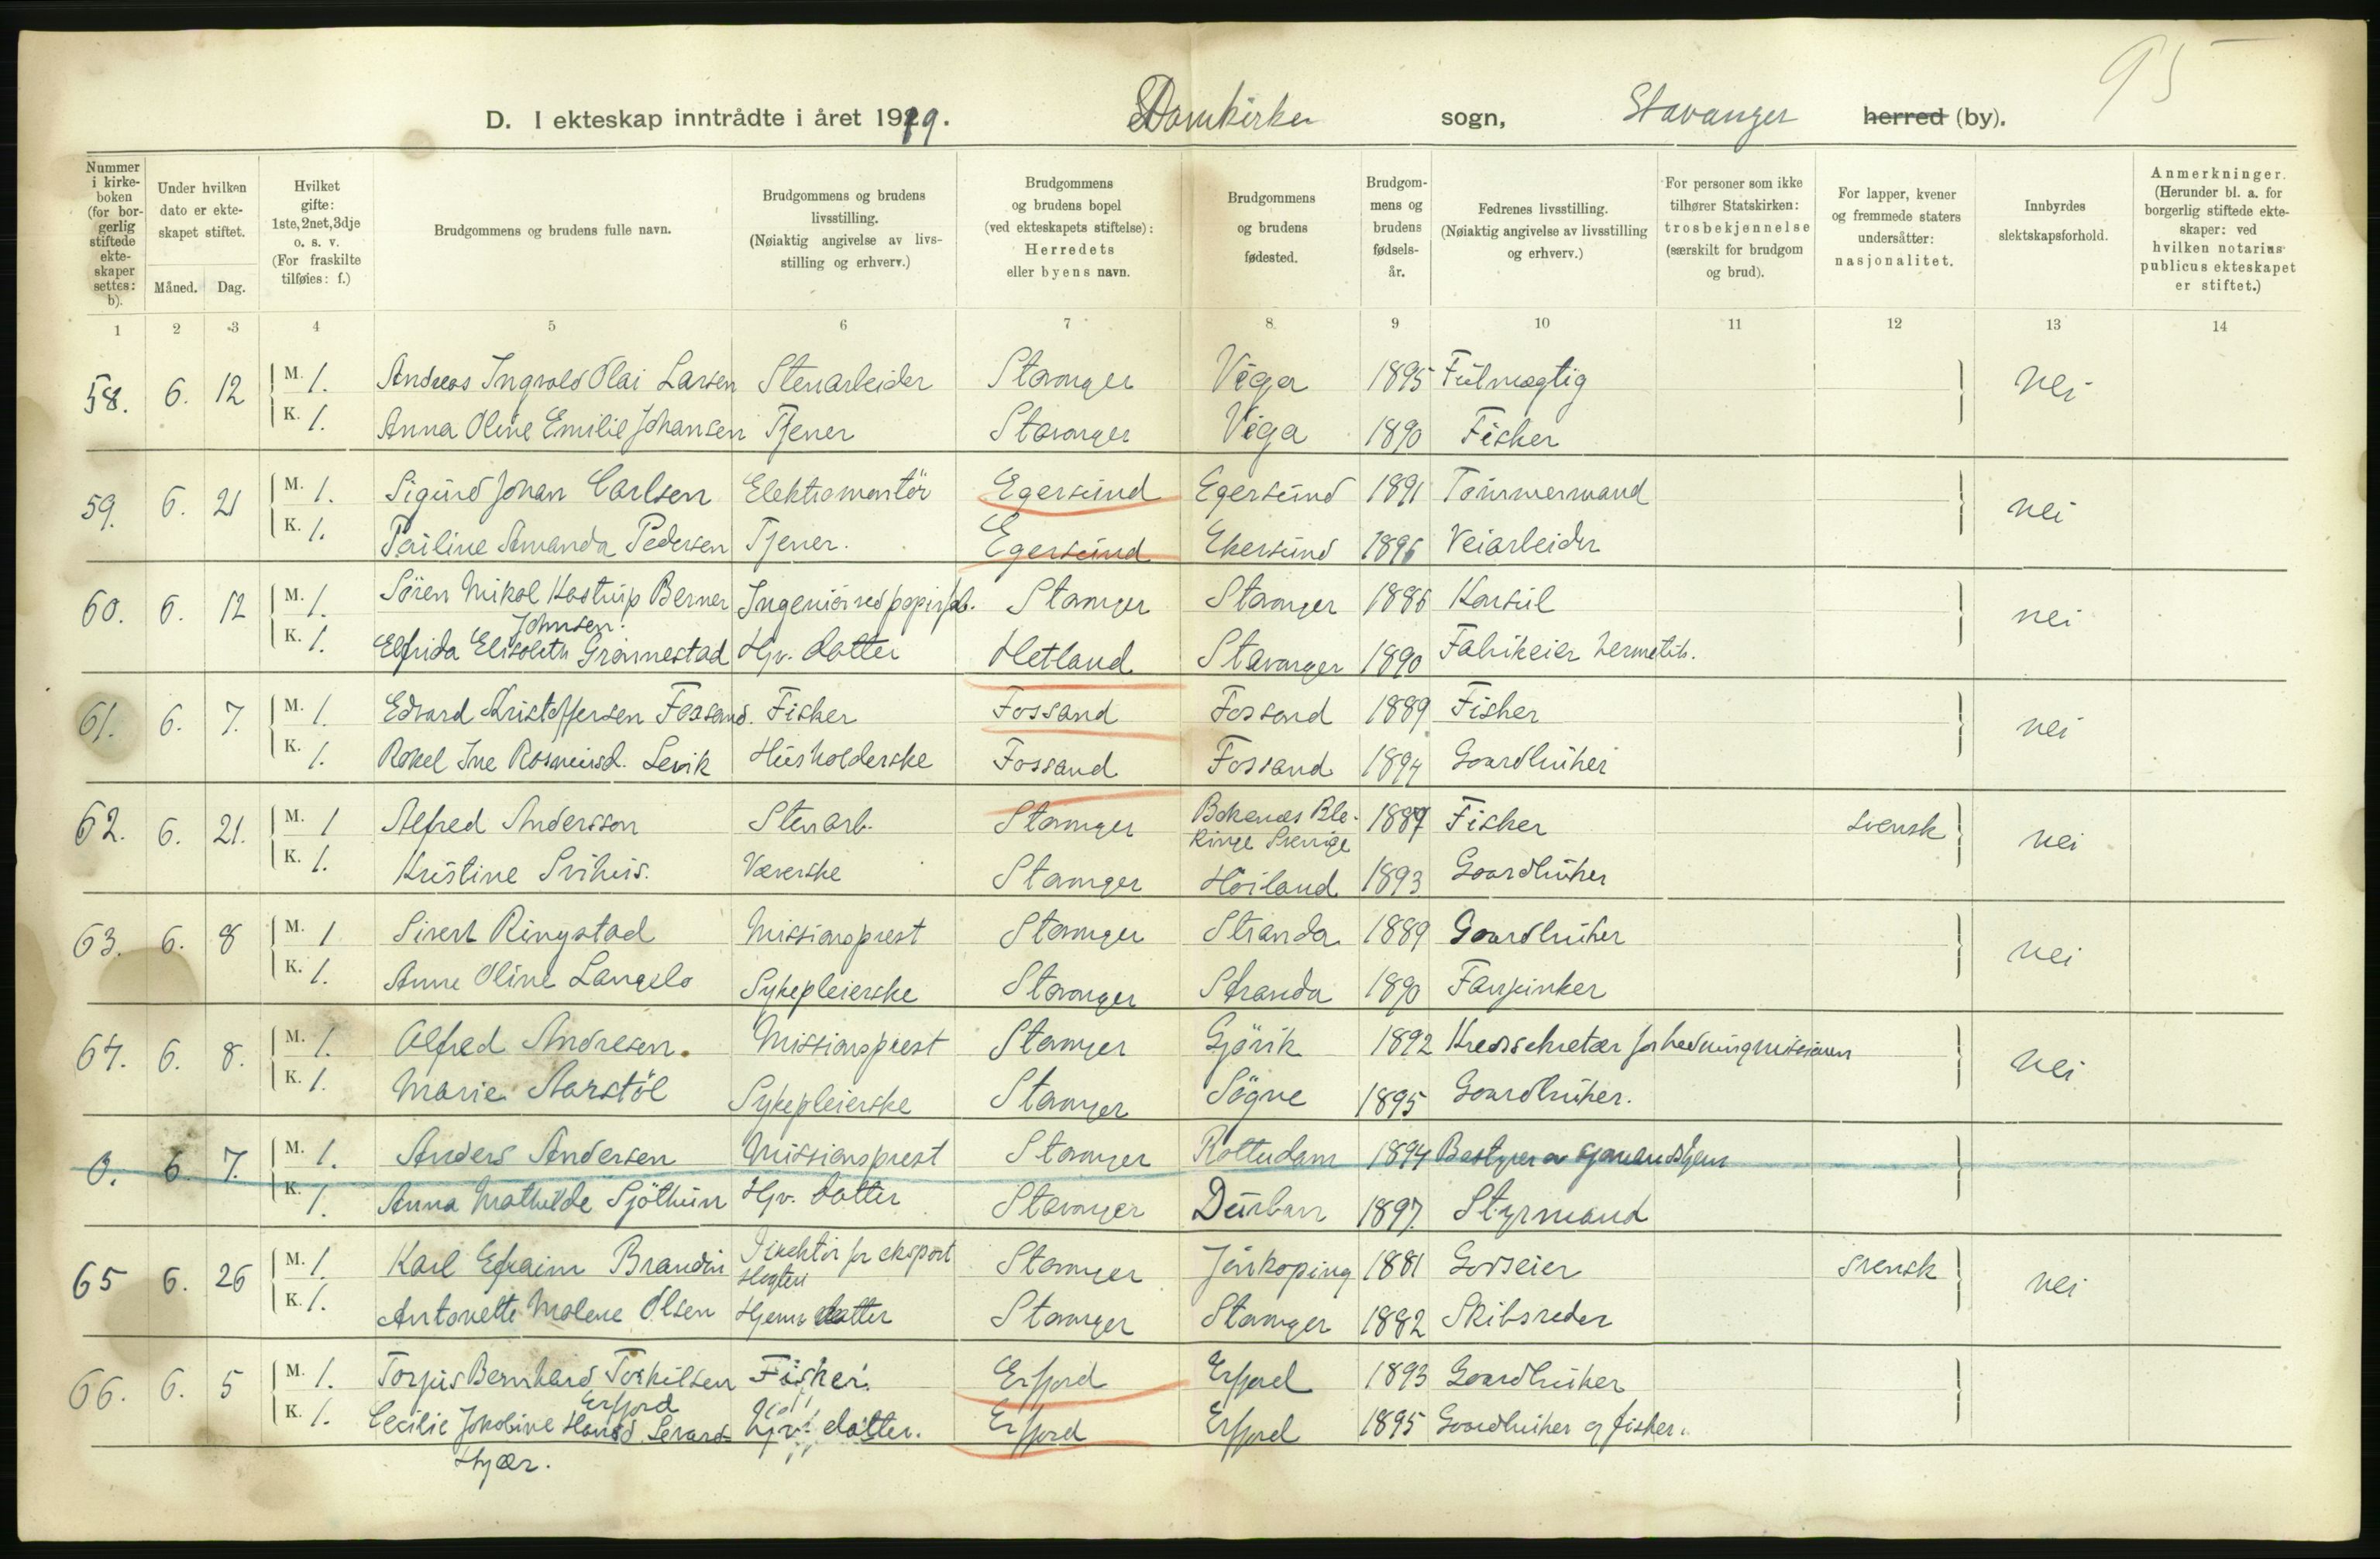 95
D. I ekteskap inntrådte i året 1919. Domkirken sogn, Stavanger herred (by).
Nummer i kirkeboken (for borgerlig stiftede ekteskaper settes: b).
Under hvilken dato er ekteskapet stiftet.
Måned. Dag.
Hvilket gifte: 1ste, 2net, 3dje o. s. v. (For fraskilte tilføies: f.)
Brudgommens og brudens fulle navn.
Brudgommens og brudens livsstilling. (Nøiaktig angivelse av livsstilling og erhverv.)
Brudgommens og brudens bopel (ved ekteskapets stiftelse): Herredets eller byens navn.
Brudgommens og brudens fødested.
Brudgommens og brudens fødselsår.
Fedrenes livsstilling. (Nøiaktig angivelse av livsstilling og erhverv.)
For personer som ikke tilhører Statskirken: trosbekjennelse (særskilt for brudgom og brud).
For lapper, kvener og fremmede staters undersåtter: nasjonalitet.
Innbyrdes slektskapsforhold.
Anmerkninger. (Herunder bl. a. for borgerlig stiftede ekteskaper: ved hvilken notarius publicus ekteskapet er stiftet.)
1 2 3 4 5 6 7 8. 9 10 11 12 13 14
58. 6. 12 M. 1. Andreas Ingvald Olai Larsen Stenarbeider Stavanger Vega 1895 Fulmægtig nei
K. 1. Anna Oline Emilie Johansen Tjener Stavanger Vega 1890 Fisker
59. 6. 21 M. 1. Sigurd Johan Carlsen Elektromontör Egersund Egersund 1891 Tömmermand nei
K. 1. Pauline Amanda Pedersen Tjener. Egersund Ekersund 1896 Veiarbeider
60. 6. 12 M. 1. Sören Mikal Kastrup Berner Ingeniör ved papirfab. Stavanger Stavanger 1886 Konsul nei
Johnsen.
K. 1. Elfrida Elisabeth Grönnestad Hjv. datter Hetland Stavanger 1890 Fabrikeier hermetik.
61. 6. 7. M. 1. Edvard Kristoffersen Fossand. Fisker Fossand Fossand 1889 Fisker nei
K. 1. Rakel Ine Rasmusd. Levik Husholderske Fossand Fossand 1894 Gaardbruker
62. 6. 21. M. 1 Alfred Andersson Stenarb. Stavanger Bokenäs Ble- 1887 Fisker svensk nei
kinge Sverige
K. 1. Kristine Svihus. Væverske Stavanger Höiland 1893 Gaardbruker
63. 6. 8 M. 1 Sivert Ringstad Missionsprest Stavanger Stranda 1889 Gaardbruker nei
K. 1. Anne Oline Langelo Sykepleierske Stavanger Stranda 1890
64. 6. 8. M. 1. Alfred Andresen. Missionsprest Stavanger Gjövik 1892 Kredssekretær for hedningmissionen nei
K. 1. Marie Aarstöl Sykepleierske Stavanger Sögne 1895 Gaardbruker.
0. 6 7. M. 1. Anders Andersen Missionsprest Stavanger Rotterdam 1894 Bestyrer av sjømandshjem
K. 1. Anna Mathilde Sjöthun Hjv. datter Stavanger Durban 1897. Styrmand
65 6. 26 M. 1. Karl Efraim Brandin Direktör for eksport Stavanger Jönkoping 1881 Godseier svensk nei
K. 1. Antonette Malene Olsen Hjemv datter Stavanger Stavanger 1882 Skibsreder
66. 6. 5 M. 1. Torjus Bernhard Torkilsen Fisker. Erfjord Erfjord 1893 Gaardbruker
Erfjord
K. 1. Cecilie Jakobine Hansd. Hjv. datter. Erfjord Erfjord 1895 Gaardbruker og fisker.